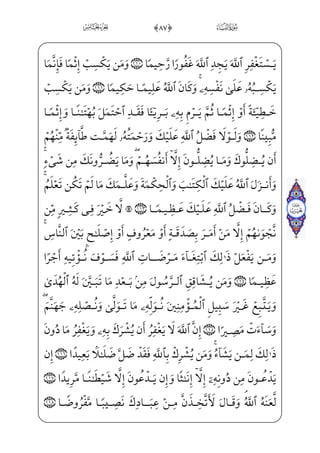 ﴿٨٧﴾
يَسْتَغْفِرِ اللَّهَ يَجِدِ اللَّهَ غَفُورًا رَّحِيمًا ١١٠ وَمَن يَكْسِبْ إِثْمًا فَإِنَّمَا
يَكْسِبُهُ عَلَىٰ نَفْسِهِ ۚ وَكَانَ اللَّهُ عَلِيمًا حَكِيمًا ١١١ وَمَن يَكْسِبْ
خَطِيئَةً أَوْ إِثْمًا ثُمَّ يَرْمِ بِهِ بَرِيئًا فَقَدِ احْتَمَلَ بُهْتَانًا وَإِثْمًا
مُّبِينًا ١١٢ وَلَوْلَا فَضْلُ اللَّهِ عَلَيْكَ وَرَحْمَتُهُ لَهَمَّت طَّائِفَةٌ مِّنْهُمْ
أَن يُضِلُّوكَ وَمَا يُضِلُّونَ إِلَّا أَنفُسَهُمْ ۖ وَمَا يَضُرُّونَكَ مِن شَيْءٍ ۚ
وَأَنزَلَ اللَّهُ عَلَيْكَ الْكِتَابَ وَالْحِكْمَةَ وَعَلَّمَكَ مَا لَمْ تَكُن تَعْلَمُ ۚ
وَكَانَ فَضْلُ اللَّهِ عَلَيْكَ عَظِيمًا ١١٣ ۞ لَّا خَيْرَ فِي كَثِيرٍ مِّن
نَّجْوَاهُمْ إِلَّا مَنْ أَمَرَ بِصَدَقَةٍ أَوْ مَعْرُوفٍ أَوْ إِصْلَاحٍ بَيْنَ النَّاسِ ۚ
وَمَن يَفْعَلْ ذَٰلِكَ ابْتِغَاءَ مَرْضَاتِ اللَّهِ فَسَوْفَ نُؤْتِيهِ أَجْرًا
عَظِيمًا ١١٤ وَمَن يُشَاقِقِ الرَّسُولَ مِن بَعْدِ مَا تَبَيَّنَ لَهُ الْهُدَىٰ
وَيَتَّبِعْ غَيْرَ سَبِيلِ الْمُؤْمِنِينَ نُوَلِّهِ مَا تَوَلَّىٰ وَنُصْلِهِ جَهَنَّمَ ۖ
وَسَاءَتْ مَصِيرًا ١١٥ إِنَّ اللَّهَ لَا يَغْفِرُ أَن يُشْرَكَ بِهِ وَيَغْفِرُ مَا دُونَ
ذَٰلِكَ لِمَن يَشَاءُ ۚ وَمَن يُشْرِكْ بِاللَّهِ فَقَدْ ضَلَّ ضَلَالًا بَعِيدًا ١١٦ إِن
يَدْعُونَ مِن دُونِهِ إِلَّا إِنَاثًا وَإِن يَدْعُونَ إِلَّا شَيْطَانًا مَّرِيدًا ١١٧
لَّعَنَهُ اللَّهُ ۘ وَقَالَ لَأَتَّخِذَنَّ مِنْ عِبَادِكَ نَصِيبًا مَّفْرُوضًا ١١٨